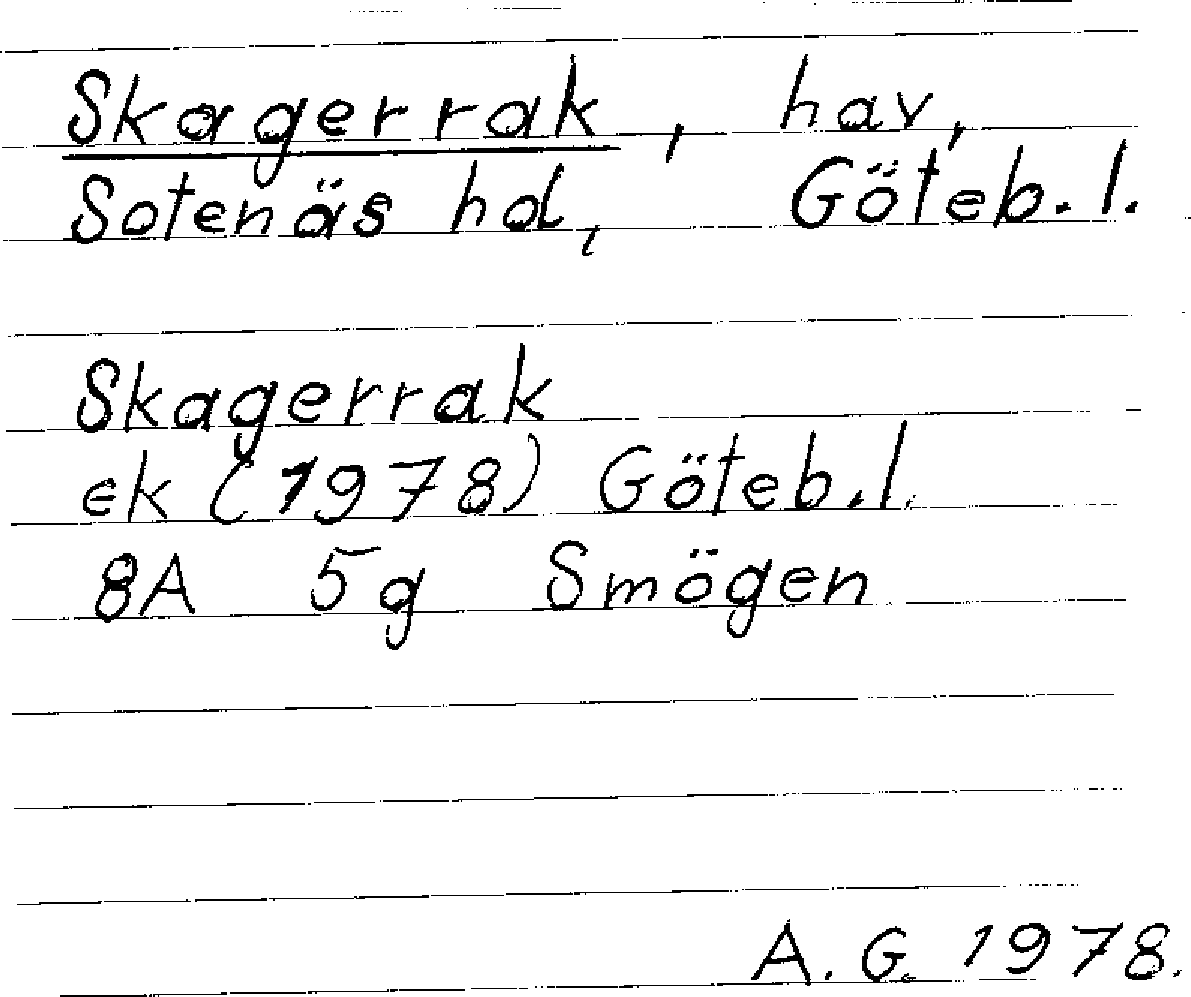 Skagerrak, hav,
Sotenäs hd, Göteb. l.
Skagerrak
ek (1978) Göteb. l.
8A 5g Smögen
A. G. 1978.